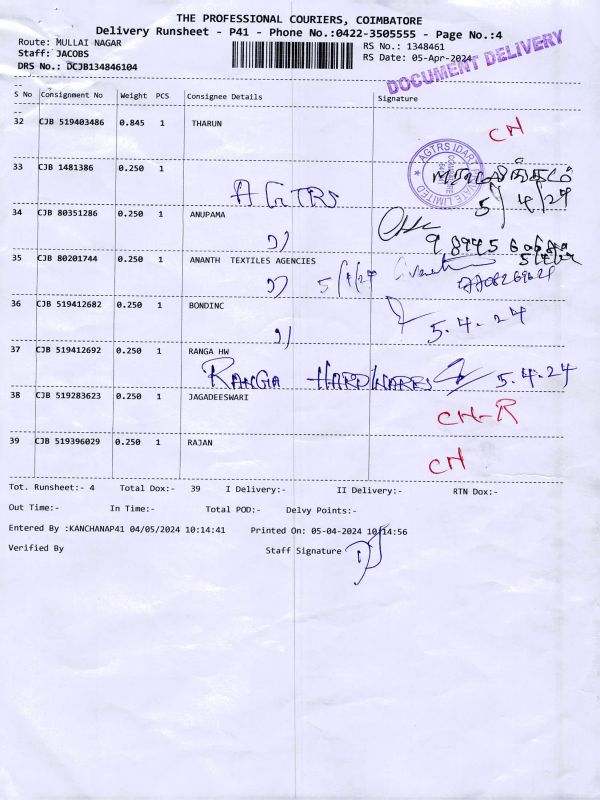 THE PROFESSIONAL COURIERS, COIMBATORE
Delivery Runsheet - P41 - Phone No.:0422-3505555 - Page No.:4
Route: MULLAI NAGAR RS No.: 1348461
Staff: JACOBS RS Date: 05-Apr-2024
DRS No.: DCJB134846104
DOCUMENT DELIVERY
S No Consignment No Weight PCS Consignee Details Signature
32 CJB 519403486 0.845 1 THARUN CN
33 CJB 1481386 0.250 1
AGTRS 5/4/24
34 CJB 80351286 0.250 1 ANUPAMA
35 CJB 80201744 0.250 1 ANANTH TEXTILES AGENCIES
5/4/24
36 CJB 519412682 0.250 1 BONDINC
5.4.24
37 CJB 519412692 0.250 1 RANGA HW
RANGA HARDWARES 5.4.24
38 CJB 519283623 0.250 1 JAGADEESWARI
CN-R
39 CJB 519396029 0.250 1 RAJAN CN
Tot. Runsheet:- 4 Total Dox:- 39 I Delivery:- II Delivery:- RTN Dox:-
Out Time:- In Time:- Total POD:- Delvy Points:-
Entered By :KANCHANAP41 04/05/2024 10:14:41 Printed On: 05-04-2024 10:14:56
Verified By Staff Signature